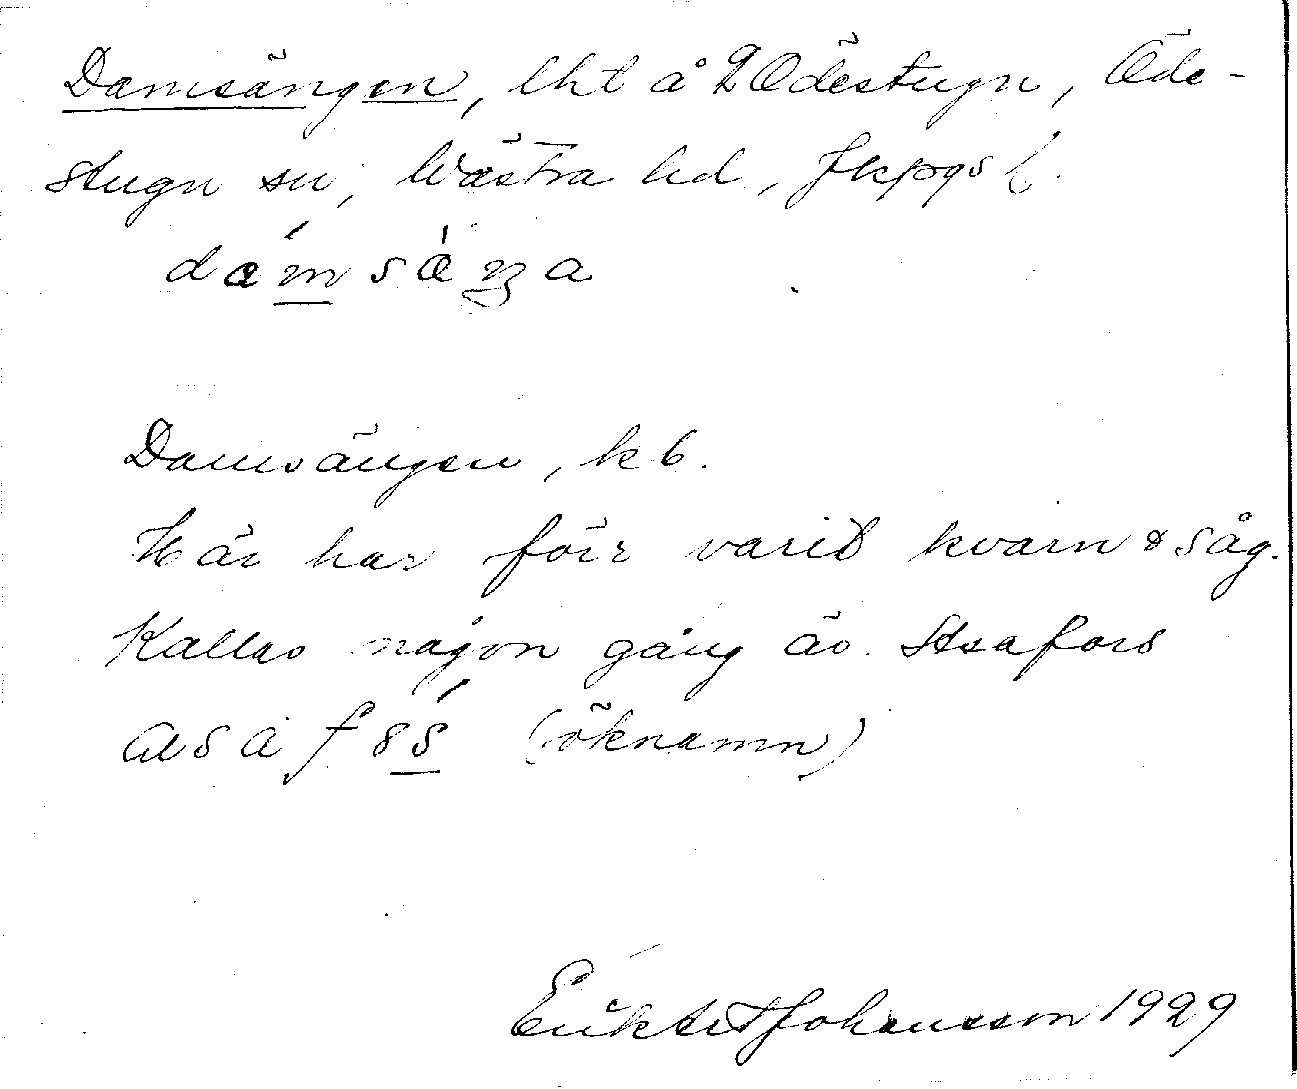 Damsängen, lht å 2 Ödestugu, Öde-
stugu sn, Västra hd, Jkpgs l.
dámsǽŋa
Damsängen, kb.
Här har förr varit kvarn & såg.
Kallas någon gång äv. Asafors
(öknamn)
Johansson 1929